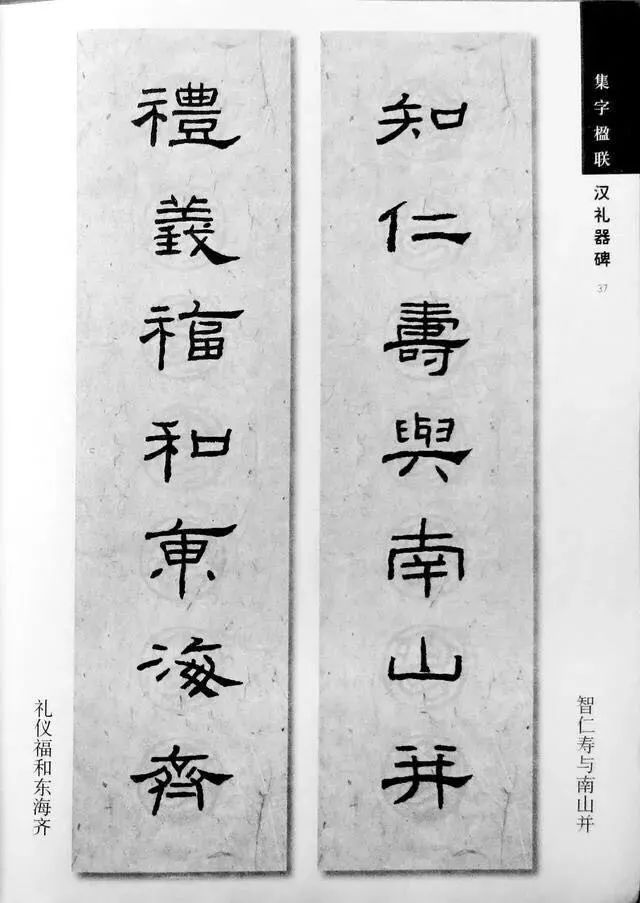 集字楹联
汉礼器碑
37
知仁壽與南山并
禮義福和東海齊
智仁寿与南山并
礼仪福和东海齐